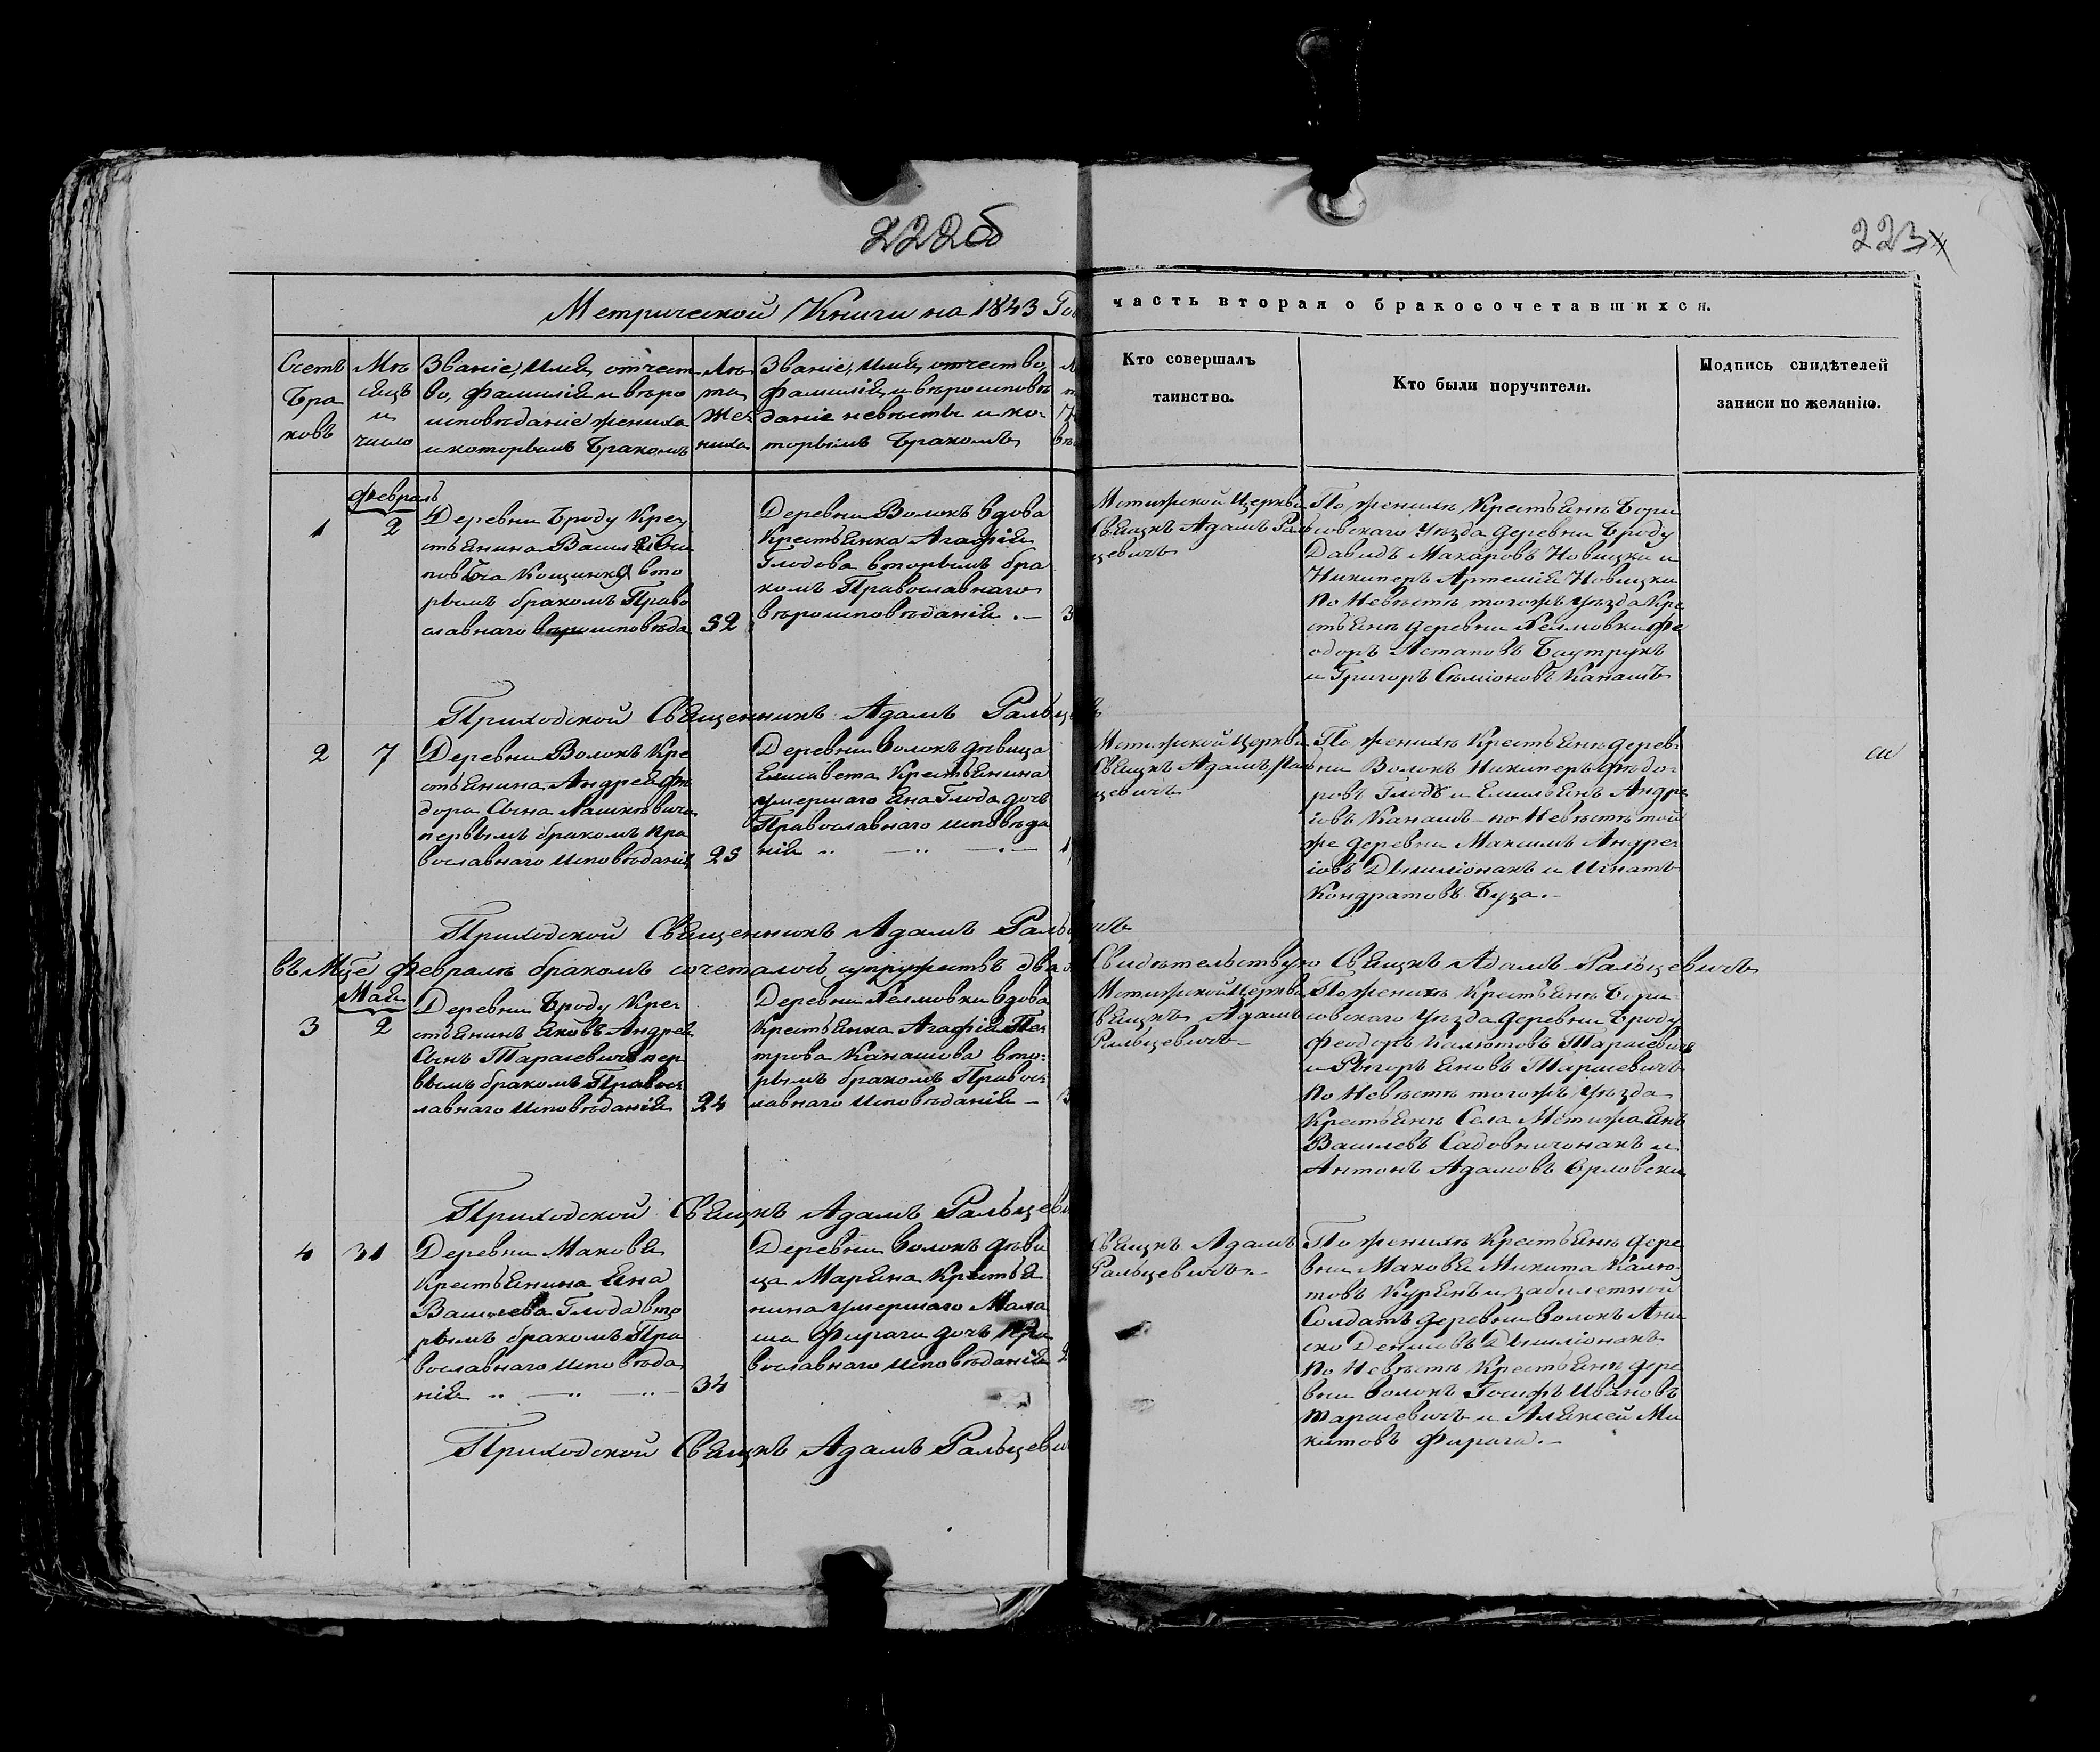 222об
223
Метрической Книги на 1843 Го
часть вторая о бракосочетавшихся.
Счетъ
Бра
ковъ
Мѣ
сяцъ
и
число
Званіе, Имя, отчест
во, фамилія и вѣро
исповѣданіе жениха
и которымъ бракомъ
Лѣ
та
Же
ниха
Званіе, имя, отчество,
фамилія и вѣроисповѣ
даніе невѣсты и ко-
торымъ бракомъ
Кто совершалъ
таинство.
Кто были поручители.
Подпись свидѣтелей
записи по желанію.
Февраль
1
2
Деревни Броду Крес
тьянина
вто
рымъ бракомъ Право
славнаго вѣроисповѣда
52
Деревни Волокъ вдова
Крестьянка Агафія
Глодова вторымъ бра
комъ Православнаго
вѣроисповѣданія .—
3
Мстижской Церкви
Свящнкъ Адамъ Раль
цевичъ
По женихѣ Крестьяне Бори
совскаго Уѣзда деревни Броду
Давидъ Макаровъ Новицки и
Никиперъ Артемія Новицки
по Невѣстѣ тогожъ Уѣзда Кре
стьяне деревни Фе
одоръ Астаповъ
и Григоръ Сѣміоновъ Канашъ
Приходской Священникъ Адамъ Ральце
2
7
Деревни Волокъ Кре
стьянина Андрея Фе
дора Сына Лашкевича
первымъ бракомъ Пра
вославнаго Исповѣданія
25
Деревни Волокъ дѣвица
Елисавета Крестьянина
умершаго Яна Глода дочь
Православнаго Исповѣда
нія „ — „ — . —
1
Мстижской Церкви
Свящнкъ Адамъ Раль
цевичъ
По женихѣ Крестьяне дерев-
ни Волокъ Никиперъ Фѣдо-
ровъ Глодъ и Емильянъ Андре
іовъ Канашъ – по Невѣстѣ той
же деревни Максимъ Андре-
іовъ Дымліонакъ и Игнатъ
Кондратовъ Буза.–
Приходской Священникъ Адамъ Раль
въ Мцѣ Февралѣ бракомъ сочеталось супружествъ два
Свидѣтельствую Свящнкъ Адамъ Ральцевичъ
Май
3
2
Деревни Броду Крес
стьянинъ Яковъ Андрея
Сынъ Тарасевичъ пер
вымъ бракомъ Правос
лавнаго Исповѣданія
24
Деревни вдова
Крестьянка Агафія Пе-
трова Канашова вто-
рымъ бракомъ Правос-
лавнаго Исповѣданія –
3
Мстижской Церкви
Свящнкъ Адамъ
Ральцевичъ
По женихѣ Крестьяне Бори
совскаго Уѣзда деревни Броду
Феодоръ Калютовъ Тарасевичъ
и Тарасевичъ
по Невѣстѣ тогожъ Уѣзда
Крестьяне Села Мстижа Янъ
Василевъ Садовничонакъ и
Антонъ Адамовъ Орловски
Приходской Свящнкъ Адамъ Ральцеви
4
31
Деревни Маковя
Крестьянина Яна
Василева Глода вто
рымъ бракомъ Пра
вославнаго Исповѣда
нія „ — „ — „ —
34
Деревни Волокъ дѣви
ца Марьяна Крестья
нина умершаго Мала
ша Фираги дочь Пра
вославнаго Исповѣданія
2
Свящнкъ Адамъ
Ральцевичъ.–
По женихѣ Крестьяне дере
вни Маковя Микита Калю-
товъ Курьянъ и забилетной
Солдатъ деревни Волокъ Ани
ско Денисовъ Дымліонакъ
по Невѣстѣ Крестьяне дере
вни Волокъ Іосифъ Ивановъ
Тарасевичъ и Алексей Ми
китовъ Фирага.–
Приходской Свящнкъ Адамъ Ральцеви